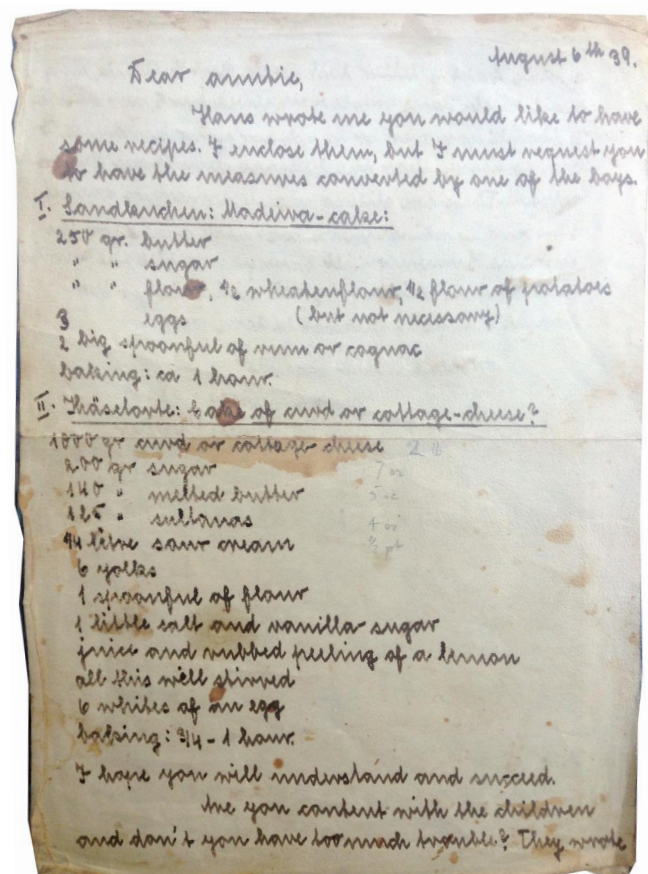 August 6th 39.
Dear auntie,
Hans wrote me you would like to have
some recipes. I enclose them, but I must request you
to have the measures converted by one of the boys.
I. Sandkuchen: Madeira-cake:
250 gr. butter
" " sugar
" " flour, 1/2 wheatenflour, 1/2 flour of potatoes
3 eggs (but not necessary)
2 big spoonful of rum or cognac
baking: ca 1 hour.
II. Käsetorte: Cake of curd or cottage-cheese?
1000 gr curd or cottage cheese 2 lb
200 gr sugar 7 oz
140 " melted butter 5 oz
125 " sultanas 4 oz
1/4 litre sour cream 1/2 pt
6 yolks
1 spoonful of flour
1 little salt and vanilla sugar
juice and rubbed peeling of a lemon
all this well stirred
6 whites of an egg
baking: 3/4 - 1 hour.
I hope you will understand and succeed.
Are you content with the children
and don't you have too much trouble? They wrote